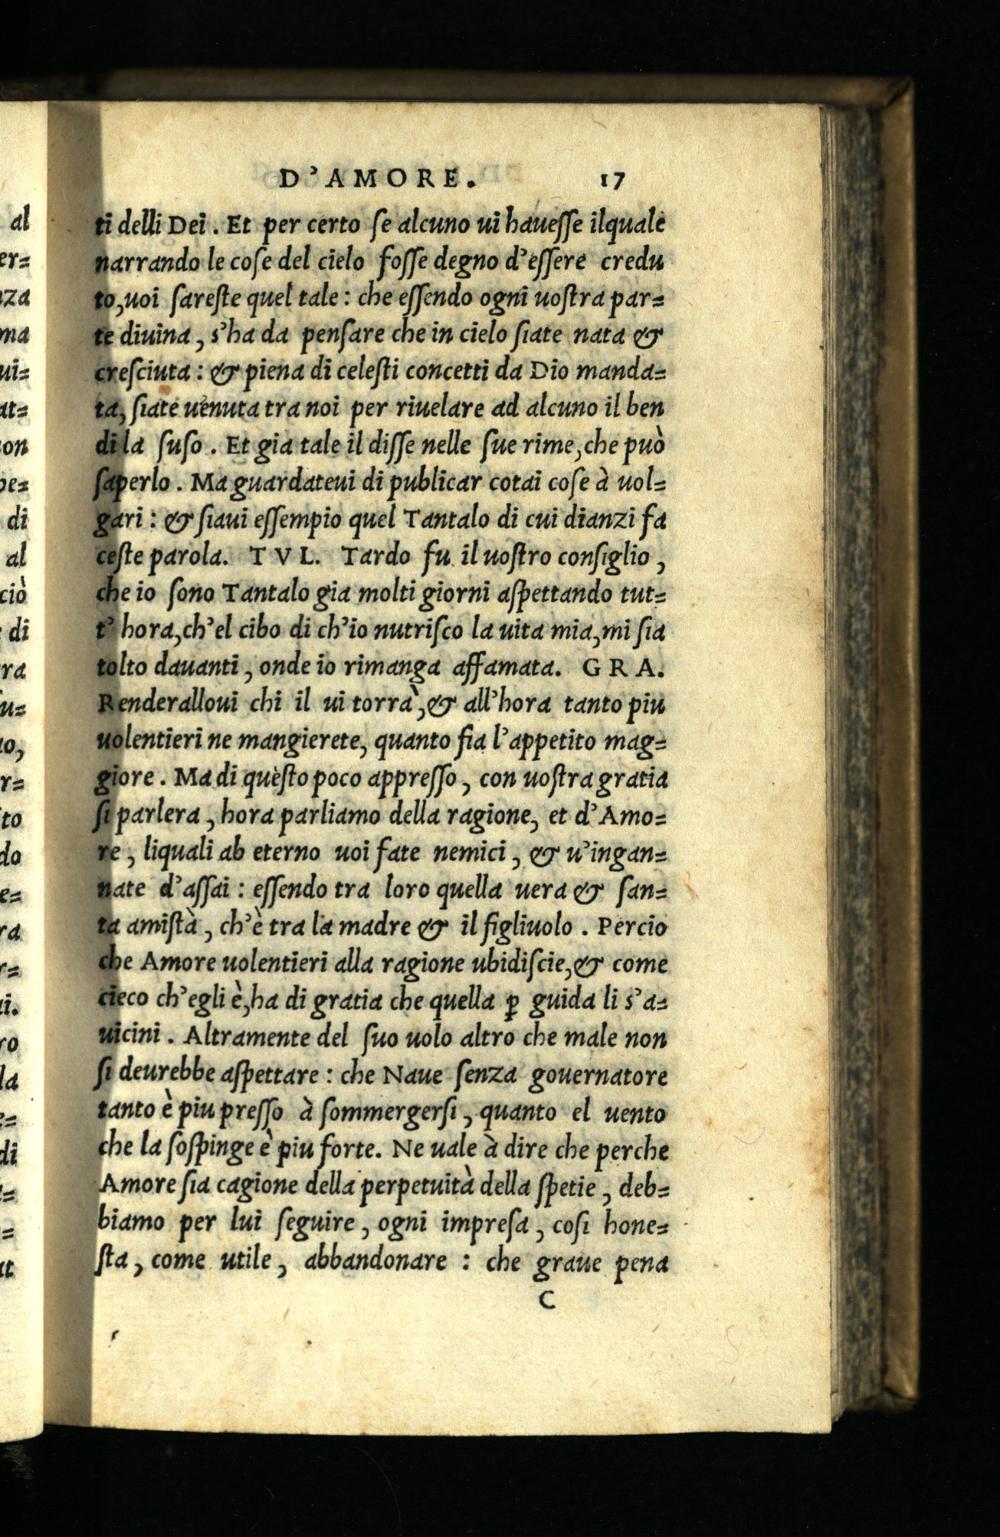 D'AMORE. 17
ti delli Dei. Et per certo ſe alcuno ui haueſſe ilquale
narrando le coſe del cielo foſſe degno d'eſſere credu
to, uoi ſareſte quel tale: che eſſendo ogni uoſtra par=
te diuina, s'ha da penſare che in cielo ſiate nata &
creſciuta: & piena di celeſti concetti da Dio manda=
ta, ſiate uenuta tra noi per riuelare ad alcuno il ben
di la ſuſo. Et gia tale il diſſe nelle ſue rime, che può
ſaperlo. Ma guardateui di publicar cotai coſe à uol=
gari: & ſiaui eſſempio quel Tantalo di cui dianzi fa
ceſte parola. TVL. Tardo fu il uoſtro conſiglio,
che io ſono Tantalo gia molti giorni aſpettando tut=
t'hora, ch'el cibo di ch'io nutriſco la uita mia, mi ſia
tolto dauanti, onde io rimanga affamata. GRA.
Renderalloui chi il ui torrà, & all'hora tanto piu
uolentieri ne mangierete, quanto fia l'appetito mag=
giore. Ma di queſto poco appreſſo, con uoſtra gratia
ſi parlera, hora parliamo della ragione, et d'Amo=
re, liquali ab eterno uoi fate nemici, & u'ingan=
nate d'aſſai: eſſendo tra loro quella uera & ſan=
ta amiſtà, ch'è tra la madre & il figliuolo. Percio
che Amore uolentieri alla ragione ubidiſcie, & come
cieco ch'egli è, ha di gratia che quella ꝑ guida li s'a=
uicini. Altramente del ſuo uolo altro che male non
ſi deurebbe aſpettare: che Naue ſenza gouernatore
tanto è piu preſſo à ſommergerſi, quanto el uento
che la ſoſpinge è piu forte. Ne uale à dire che perche
Amore ſia cagione della perpetuità della ſpetie, deb=
biamo per lui ſeguire, ogni impreſa, coſi hone=
ſta, come utile, abbandonare: che graue pena
C
al
er=
nza
ma
ui=
at=
on
pe=
di
al
ciò
di
ra
u=
no,
r=
to
do
e=
ra
r=
i.
ro
la
e=
di
t=
=
at